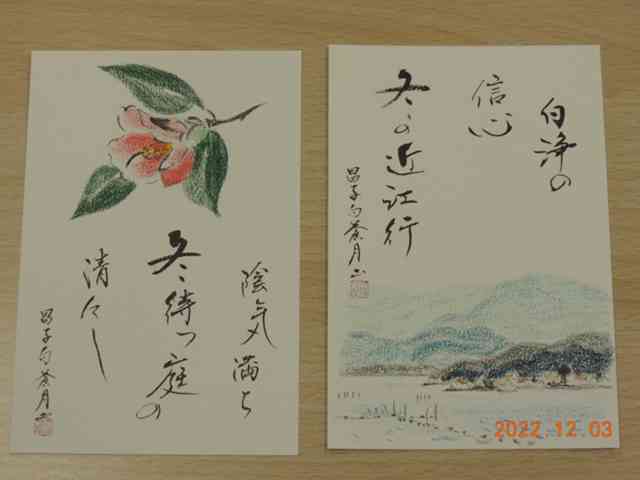 陰気満ち
冬待つ庭の
清々し
昌子句 蒼月
白浄の
信心
冬の近江行
昌子句 蒼月
2022.12.03